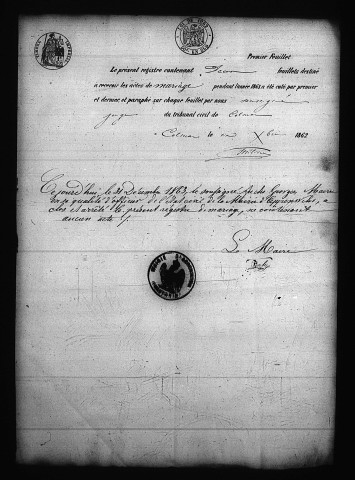 Premier Feuillet
Le présent registre contenant Deux feuillets destiné
a recevoir les actes de mariage pendant l'année 1863 a été coté par premier
et dernier et paraphé sur chaque feuillet par nous soussigné
juge du tribunal civil de Colmar
Colmar le 1862
Cejourd'hui, le 31 Décembre 1863, le soussigné Georges Maire
en sa qualité d'officier de l'état civil de la Mairie d'
clos et arrêté le présent registre de mariage, ne contenant
aucun acte
Le Maire